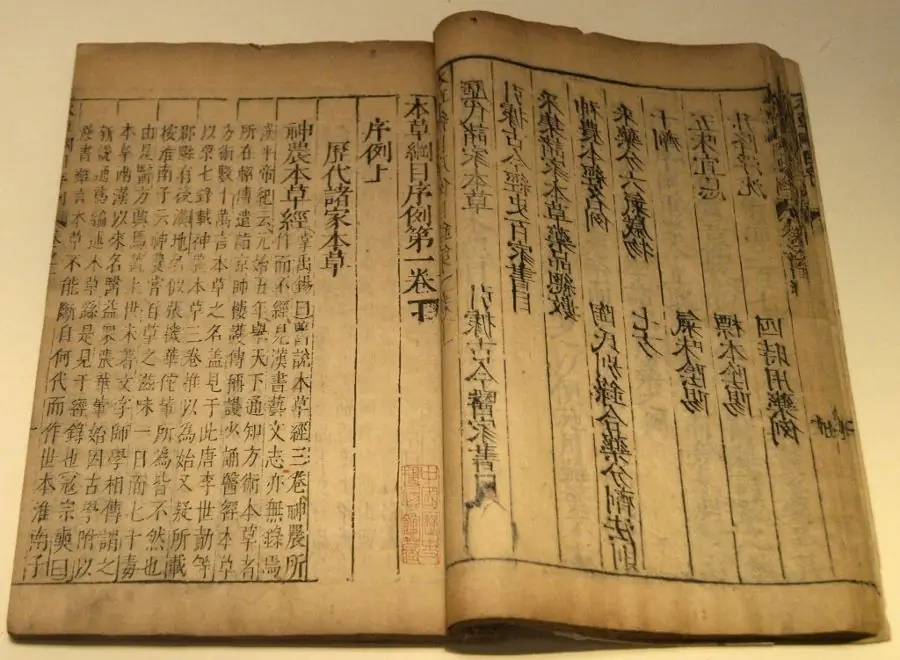 歷代諸家本草 引據古今醫家書目
引據古今經史百家書目
采集諸家本草藥品總數
神農本經名例 陶氏別錄合藥分劑法則
采藥分六氣歲物 七方
十劑 氣味陰陽
五味宜忌 標本陰陽
升降浮沈 四時用藥例
本草綱目序例第一卷
序例上
歷代諸家本草
神農本草經 掌禹錫曰舊說本草經三卷神農所
作而不經見漢書藝文志亦無錄焉
漢平帝紀云元始五年舉天下通知方術本草者
所在軺傳遣詣京師樓護傳稱護少誦醫經本草
方術數十萬言本草之名蓋見于此唐李世勣等
以梁七錄載神農本草三卷推以為始又疑所載
郡縣有後漢地名似張機華佗輩所為皆不然也
按淮南子云神農嘗百草之滋味一日而七十毒
由是醫方興焉蓋上世未著文字師學相傳謂之
本草兩漢以來名醫益眾張華輩始因古學附以
新說通為編述本草繇是見于經錄也寇宗奭曰
漢書雖言本草不能斷自何代而作世本淮南子